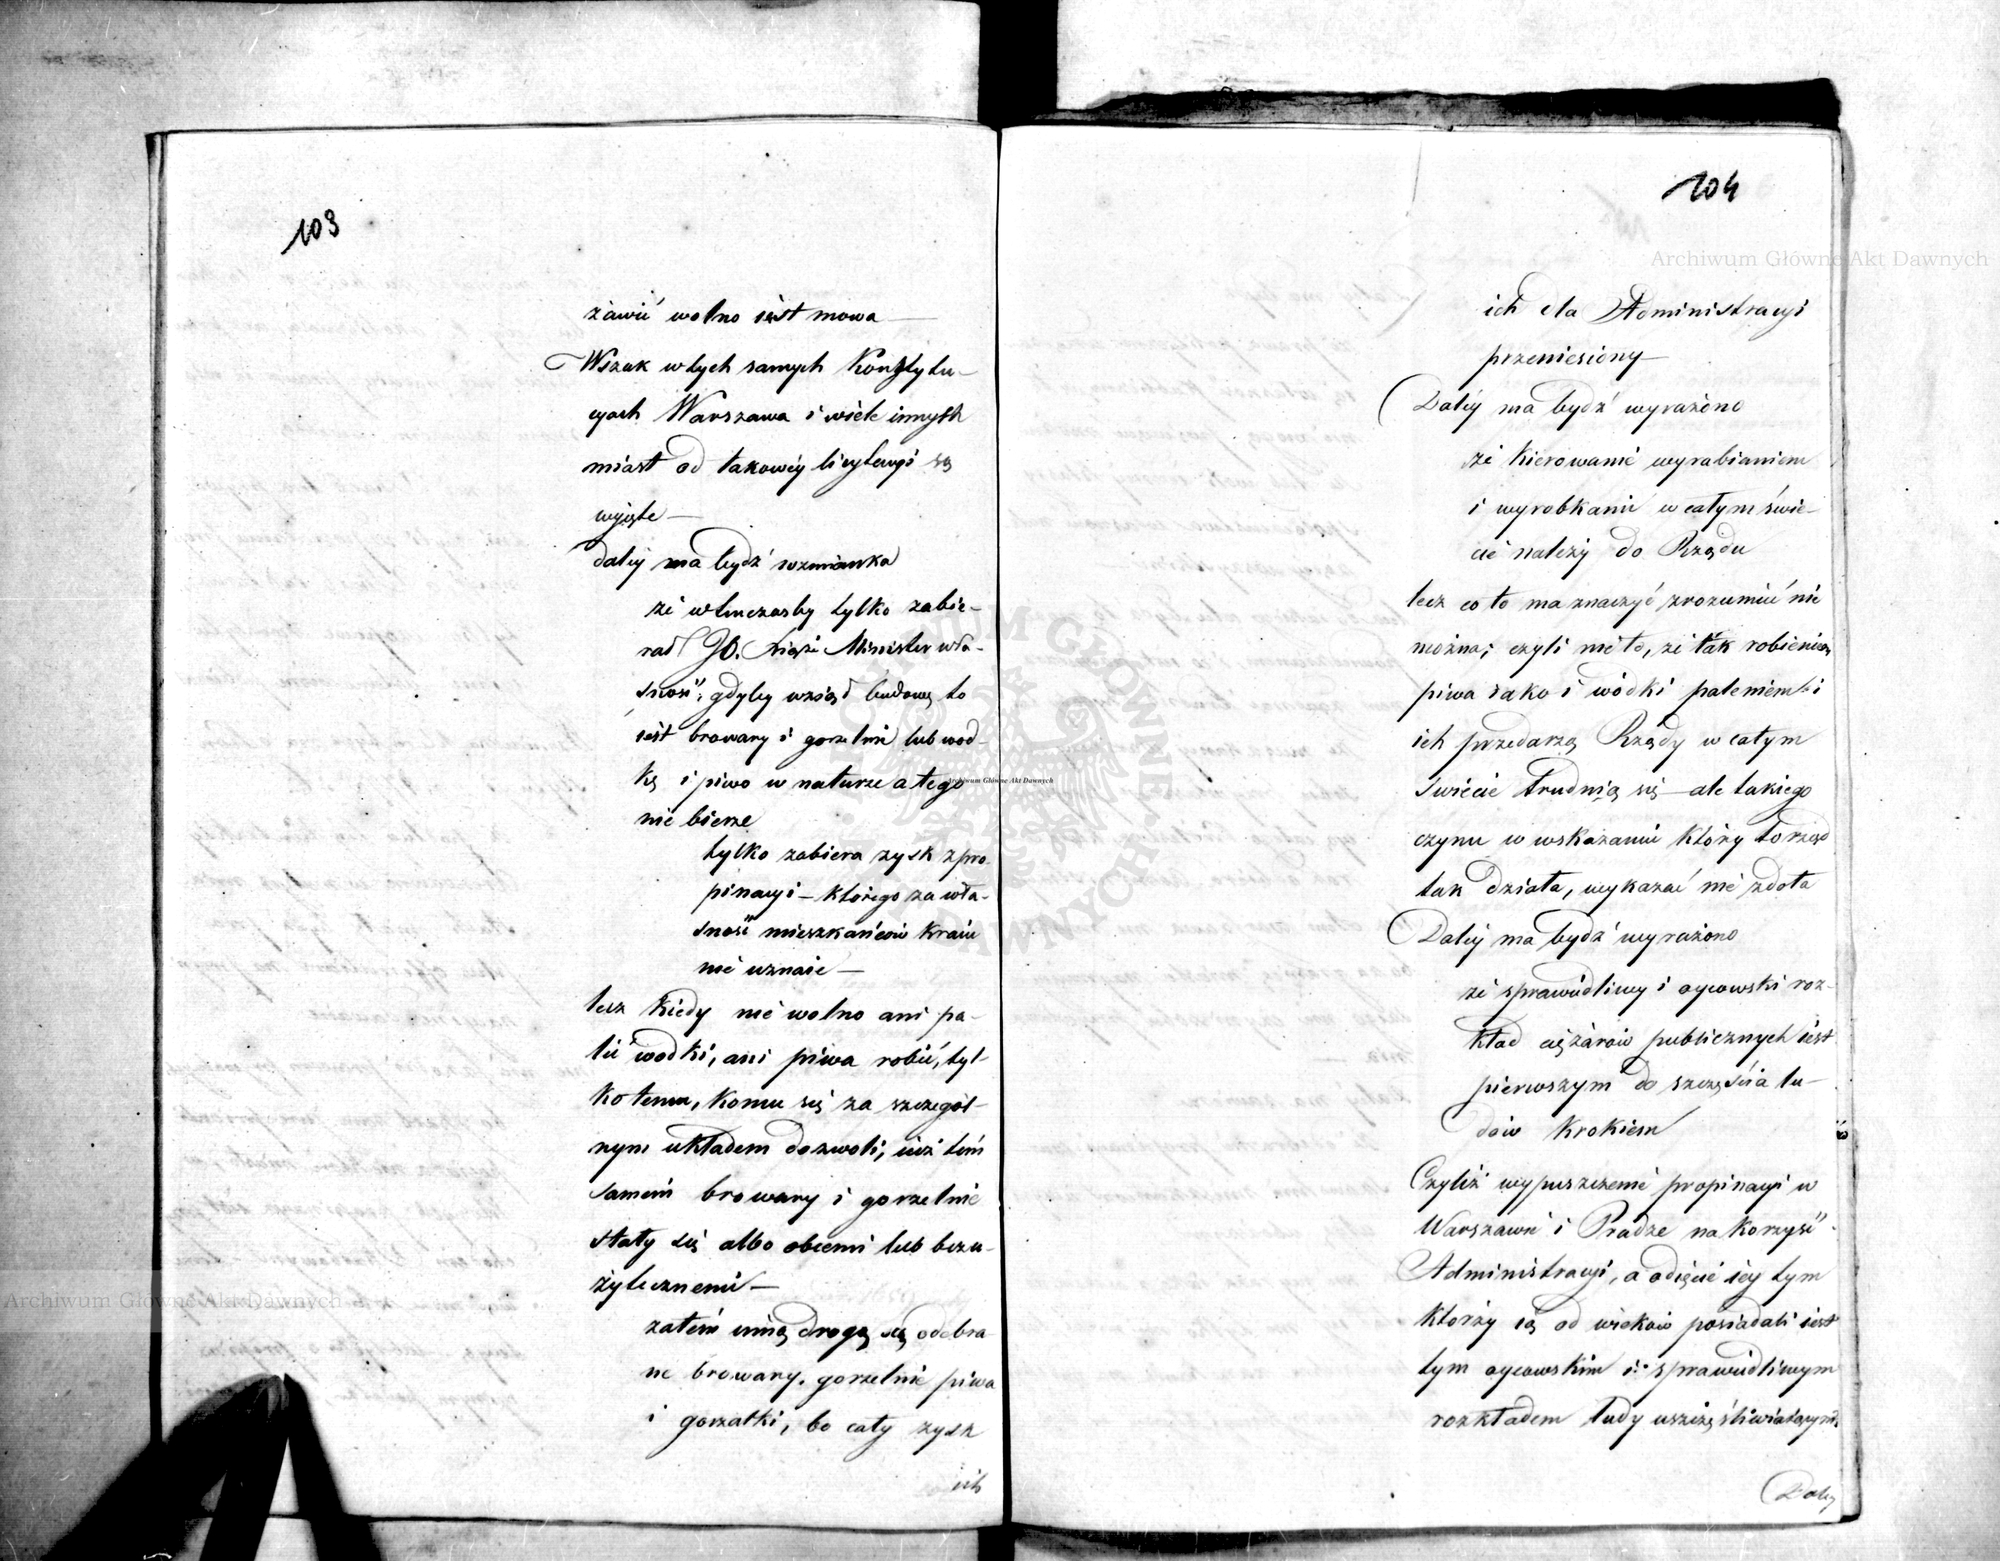 103
żawić wolno iest mowa —
Wszak w tych samych Konstytu-
cyach Warszawa i wiele innych
miast od takowéy licytacyi są
wyięte —
daléy ma bydź wzmianka
że wtenczasby tylko zabie-
rał JO. Xiąże Minister wła-
sność, gdyby wziął budowę to
iest browary i gorzelnie lub wod-
kę i piwo w naturze a tego
nie bierze
tylko zabiera zysk z pro-
pinacyi — którego za wła-
sność mieszkańców kraiu
nie uznaie —
lecz kiedy nie wolno ani pa-
lić wodki, ani piwa robić, tyl-
ko temu, komu się za szczegól-
nym układem dozwoli, iuż tém
samém browary i gorzelnie
stały się albo obcemi lub bezu-
żytecznemi —
zatém inną drogą są odebra-
ne browary, gorzelnie piwa
i gorzałki, bo cały zysk
ich
104
ich dla Administracyi
przeniesiony —
Daléy ma bydź wyrażono
że kierowanie wyrabianiem
i wyrobkami w całym świe-
cie należy do Rządu
lecz co to ma znaczyć zrozumieć nie
można; czyli nie to, że tak robieniem
piwa iako i wódki paleniem i
ich przedarzą Rządy w całym
świecie trudnią się — ale takiego
czynu w wskazaniu który to rząd
tak działa, wykazać nie zdoła
Daléy ma bydź wyrażono
że sprawiedliwy i oycowski roz-
kład ciężarów publicznych iest
pierwszym do szczęścia lu-
dów krokiem
Czyliż wypuszczenie propinacyi w
Warszawie i Pradze na korzyść
Administracyi, a odięcie iey tym
którzy ią od wieków posiadali iest
tym oycowskim i sprawiedliwym
rozkładem ludy uszczęśliwiaiącym
Daléy
Archiwum Główne Akt Dawnych
Archiwum Główne Akt Dawnych
Archiwum Główne Akt Dawnych
ARCHIWUM GŁÓWNE AKT DAWNYCH